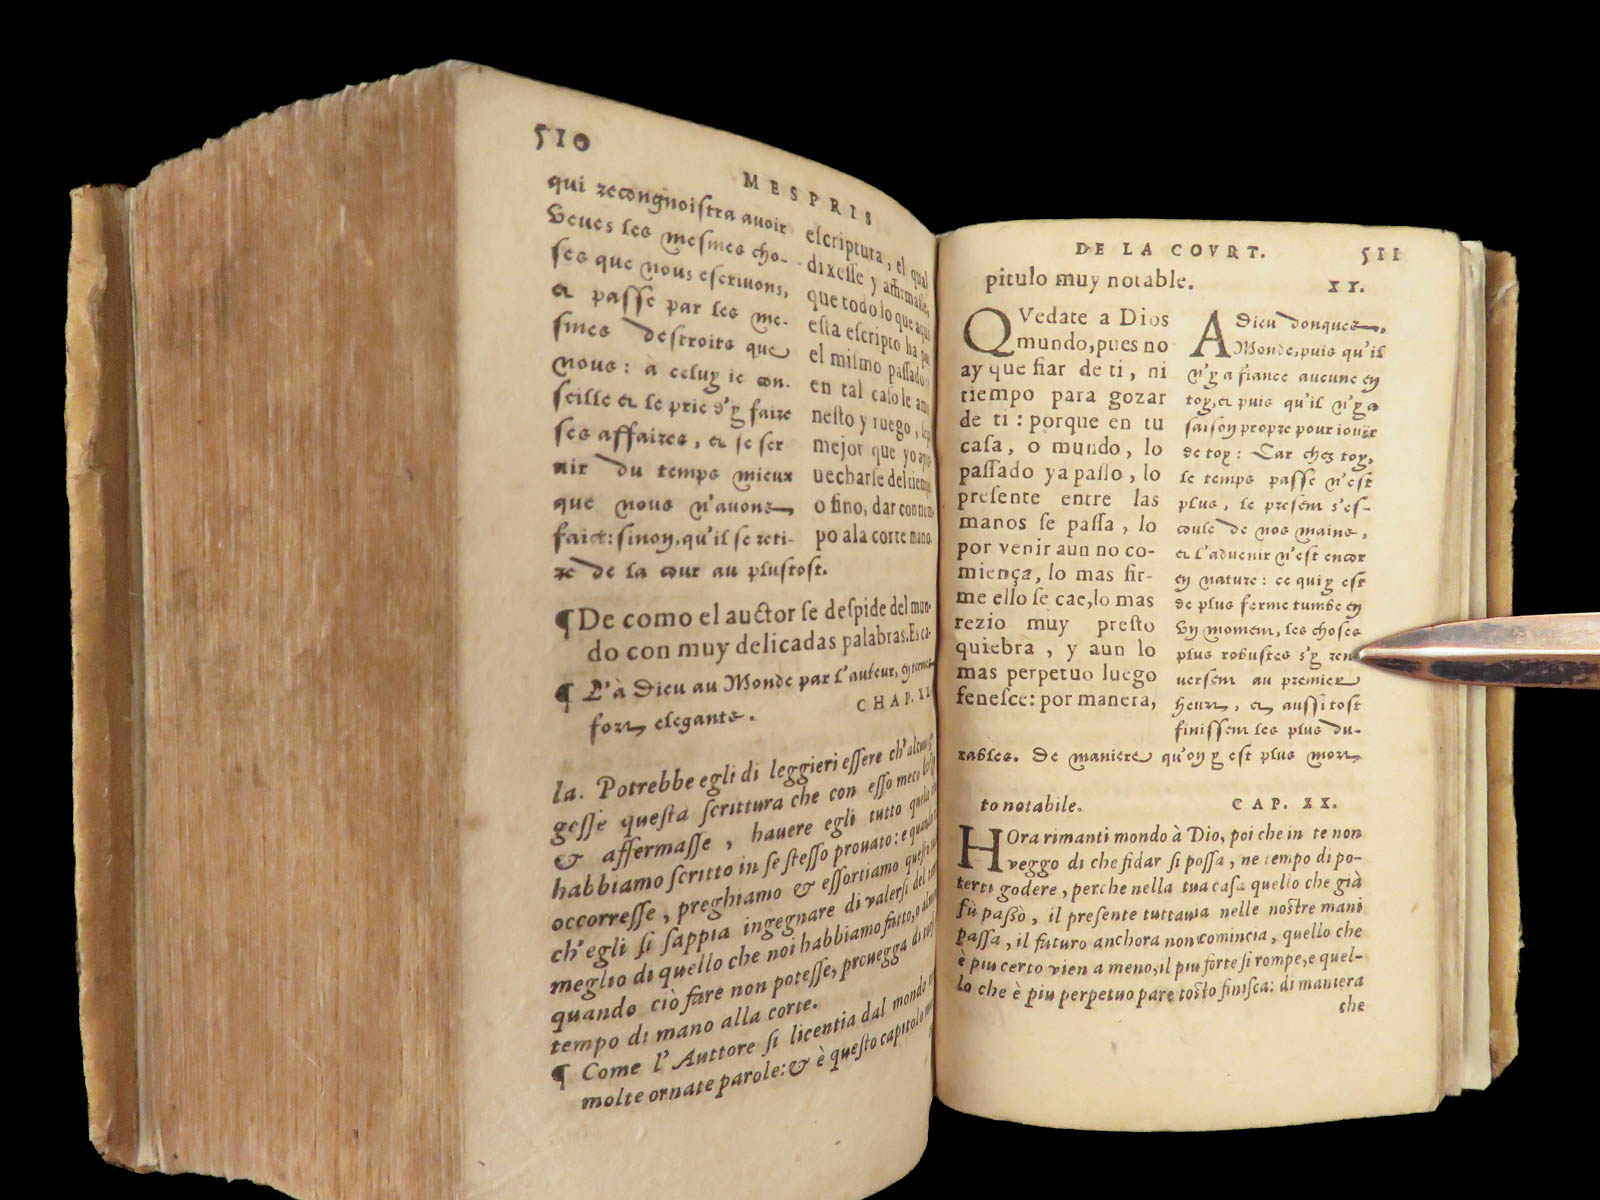 510
MESPRIS
qui recongnoiſtra auoir
veues les meſmes cho-
ſes que nous eſcriuons,
& paſſe par les me-
ſmes deſtroits que
nous: à celuy ie con-
ſeille & le prie d'y faire
ſes affaires, & ſe ſer
uir du temps mieux
que nous n'auons
faict: ſinon, qu'il ſe reti-
re de la cour au pluſtoſt.
eſcriptura, el qual
dixeſſe y affirmaſſe,
que todo lo que aqui
eſta eſcripto ha
el miſmo paſſado
en tal caſo le
neſto y ruego,
mejor que yo
uecharſe del
o ſino, dar con
po ala corte mano.
¶ De como el auctor ſe deſpide del mun-
do con muy delicadas palabras. Es ca-
¶ L'à Dieu au Monde par l'auteur, en
fort elegants.
CHAP.
la. Potrebbe egli di leggieri eſſere ch'
geſſe queſta ſcrittura che con eſſo meco
& affermaſſe, hauere egli tutto
habbiamo ſcritto in ſe ſteſſo prouato: e
occorreſſe, preghiamo & eſſortiamo
ch'egli ſi ſappia ingegnare di valerſi del
meglio di quello che noi habbiamo fatto,
quando ciò fare non poteſſe, prouegga di
tempo di mano alla corte.
¶ Come l'Auttore ſi licentia dal mondo
molte ornate parole: & è queſto capitolo
DE LA COVRT.
511
pitulo muy notable.
XX.
QVedate a Dios
mundo, pues no
ay que fiar de ti, ni
tiempo para gozar
de ti: porque en tu
caſa, o mundo, lo
paſſado ya paſſo, lo
preſente entre las
manos ſe paſſa, lo
por venir aun no co-
miença, lo mas fir-
me ello ſe cae, lo mas
rezio muy preſto
quiebra, y aun lo
mas perpetuo luego
feneſce: por manera,
ADieu donques,
Monde, puis qu'il
n'y a fiance aucune en
toy, & puis qu'il n'y a
ſaiſon propre pour iouir
de toy: Car chez toy,
le temps paſſé n'eſt
plus, le preſent s'eſ-
coule de nos mains,
& l'aduenir n'eſt encor
en nature: ce qui y eſt
de plus ferme tumbe en
vn moment, les choſes
plus robuſtes s'y ren
uerſent au premier
heurt, & auſſi toſt
finiſſent les plus du-
rables. De maniere qu'on y eſt plus mort
to notabile.
CAP. XX.
HOra rimanti mondo à Dio, poi che in te non
veggo di che fidar ſi poſſa, ne tempo di po-
terti godere, perche nella tua caſa quello che già
fù paſſò, il preſente tuttauia nelle noſtre mani
paſſa, il futuro anchora non comincia, quello che
è piu certo vien a meno, il piu forte ſi rompe, e quel-
lo che è piu perpetuo pare toſto finiſca: di maniera
che